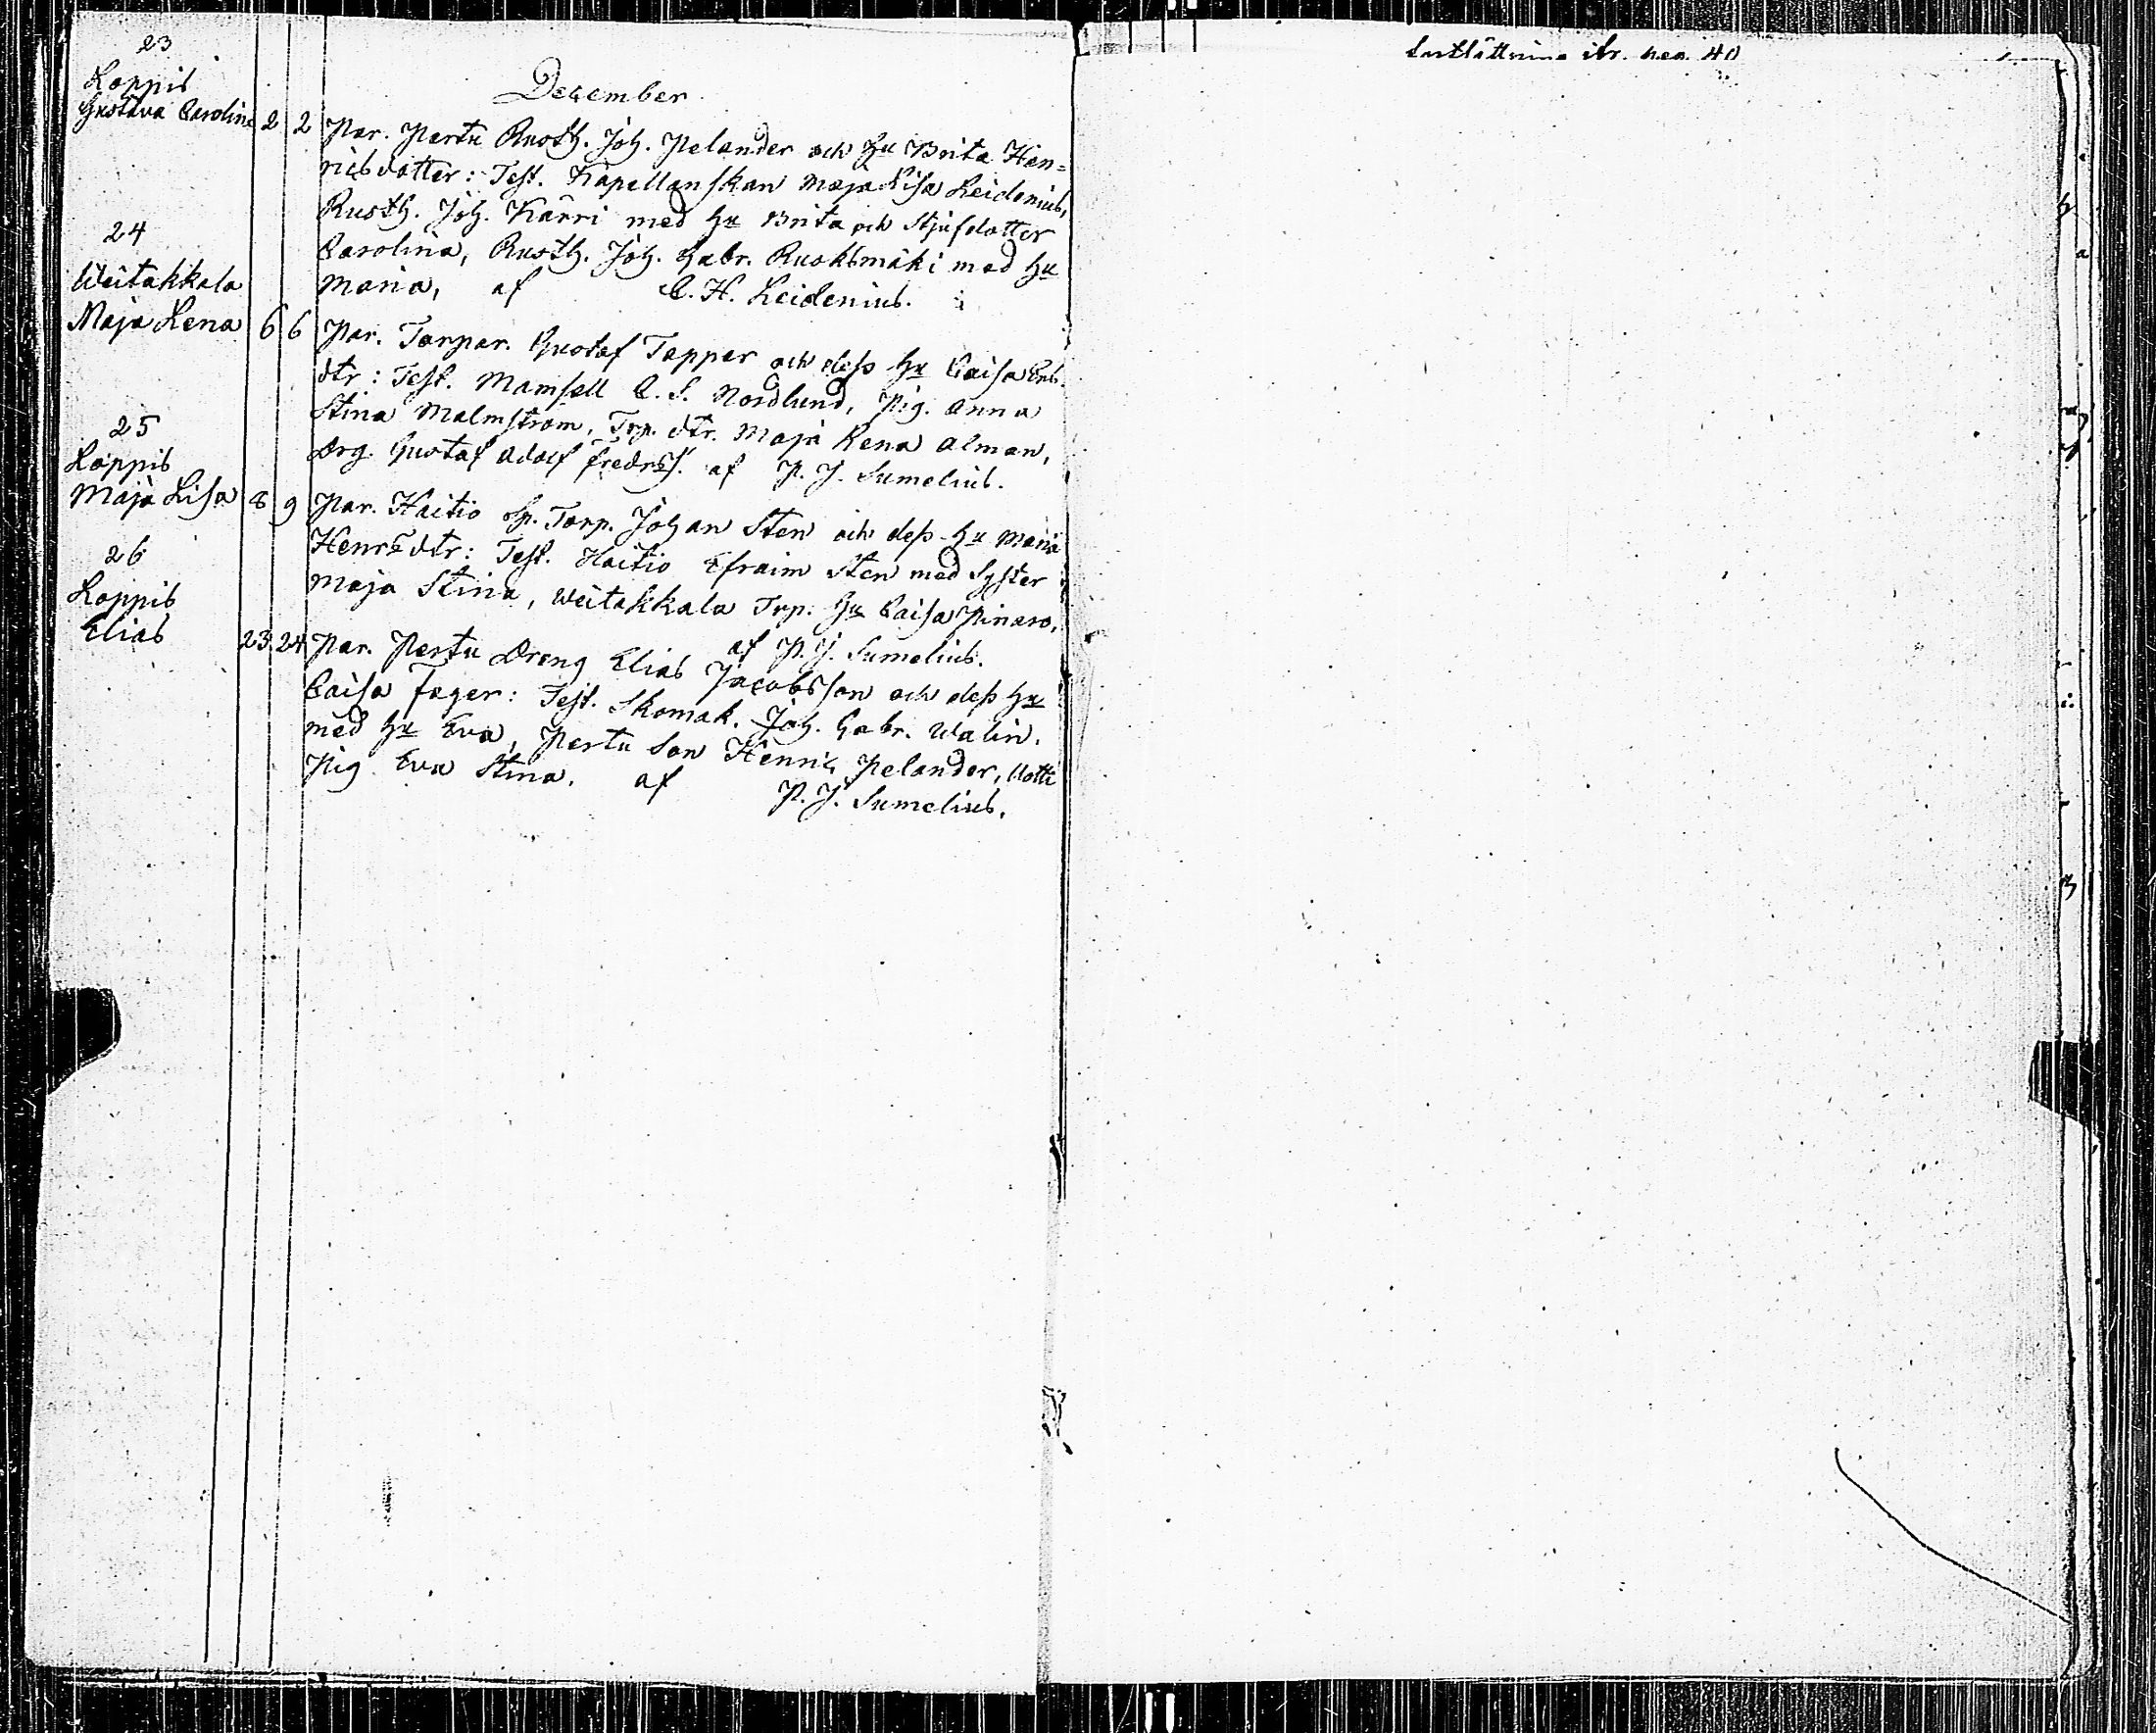 December
23
Loppis
Gustava Carolina 2 2 Par. Pertu Rusth. Joh. Pelander och hu Brita Hen=
ricsdotter: Test. Kapellanskan Maja Lisa Leidenius,
Rusth. Joh. Kärri med hu Brita och Stjufdotter
Carolina, Rusth. Joh. Gabr. Ruoksmäki med hu
Maria, af C. H. Leidenius.
24
Weitakkala
Maja Lena 6 6 Par. Torpar. Gustaf Tapper och dess hu Caisa Ers.
dtr: Test. Mamsell C. S. Nordlund, Pig. Anna
Stina Malmström, Trp. dtr. Maja Lena Alman,
Drg. Gustaf Adolf Fredrs. af P. J. Sumelius.
25
Loppis
Maja Lisa 8 9 Par. Haitio Sp. Torp. Johan Sten och dess hu Maria
Henrsdtr: Test. Haitio Efraim Sten med Syster
Maja Stina, Weitakkala Trp. hu Caisa Pinaro,
af P. J. Sumelius.
26
Loppis
Elias 23 24 Par. Pertu Dreng Elias Jacobsson och dess hu
Caisa Fager: Test. Skomak. Joh. Gabr. Walin.
med hu Eva, Pertu Son Henric Pelander, Uotti
Pig. Eva Stina, af P. J. Sumelius.